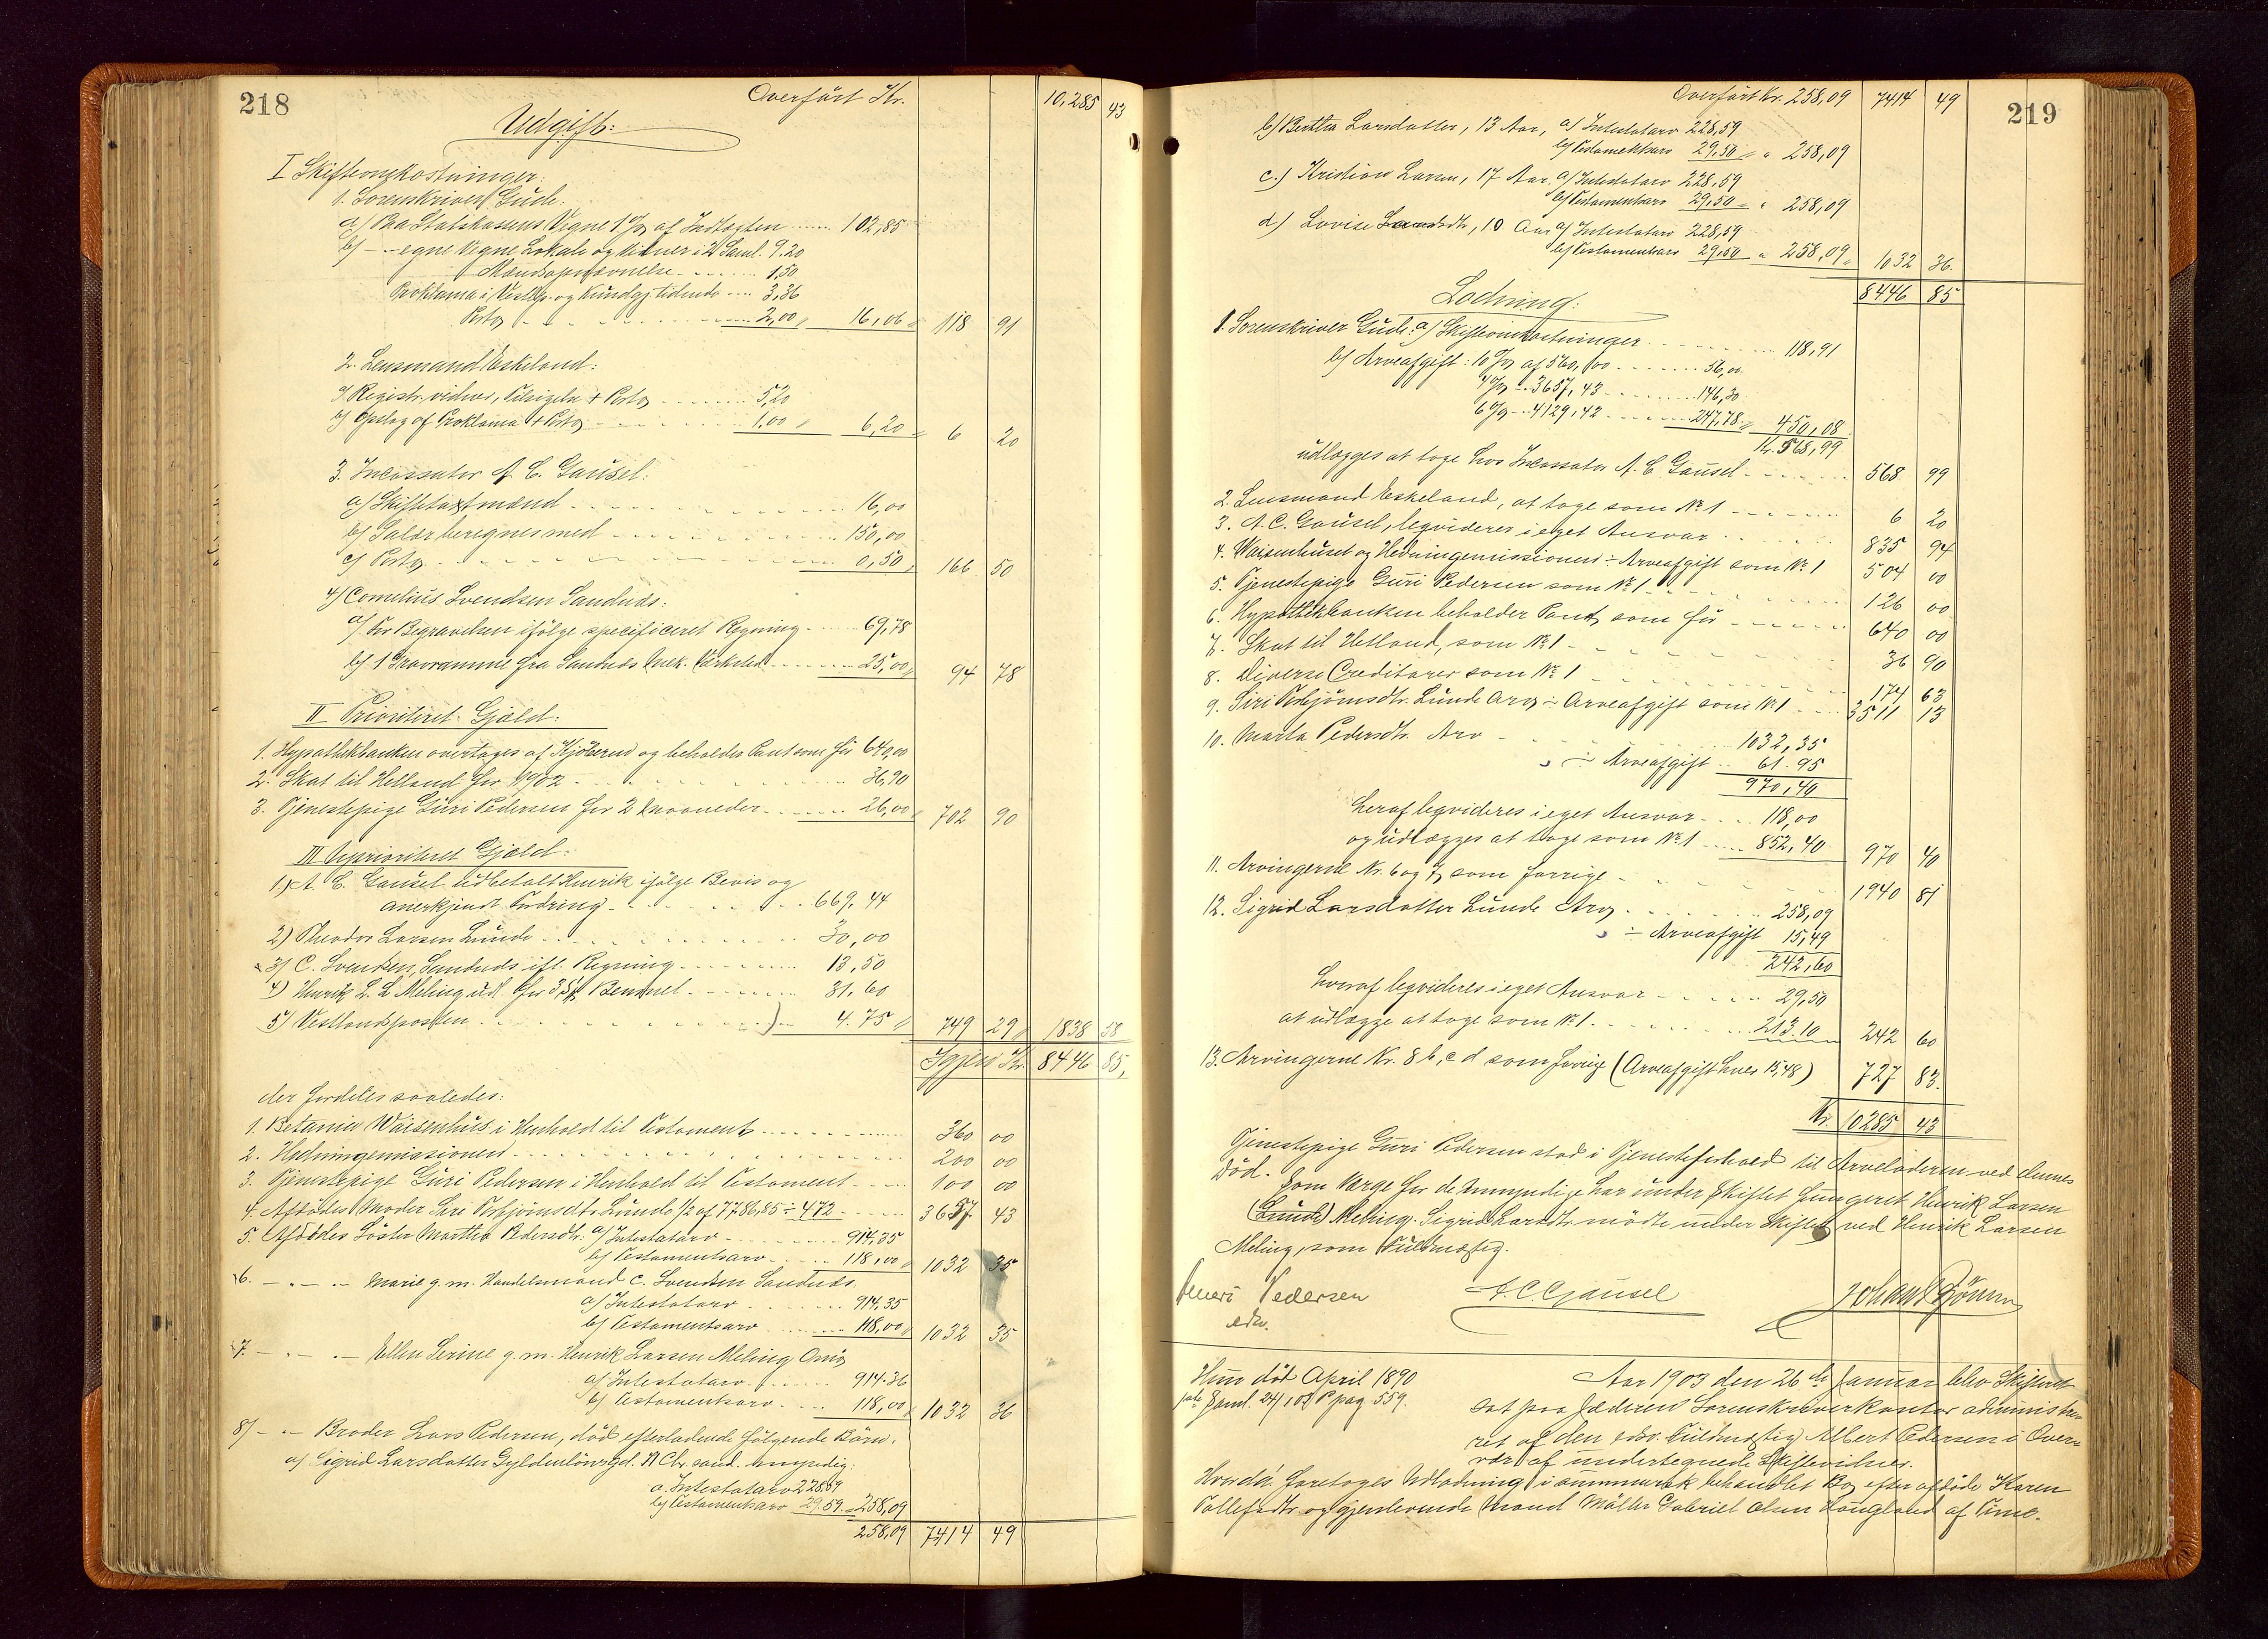 218
Overført Kr. 10,285 43
Udgift:
I Skifteomkostninger:
1. Sorenskriver Gude:
a) Paa Statskassens Vegne 1% af Indtægten 102,85
b) - - egne Vegne Lokale og Vidner i 2 Saml. 9.20
Mandsopnævnelse 1,50
Proklama i Vestlp. og Kundgj.tidende 3,36
Porto 2,00 16,06 118 91
2. Lensmand Eskeland:
a) Registr. vidner, Forsegln. + Porto 5,20
b) Opslag af Proklama + Porto 1,00 6,20 6 20
3. Incassator A. C. Gausel:
a) Skiftetaxtmænd 16,00
b) Salær beregnes med 150,00
c) Porto 0,50 166 50
4) Cornelius Svendsen Sandnæs:
a) For Begravelsen ifølge specificeret Regning 69,78
b) 1 Gravramme fra Sandnæs Mek. Værksted 25,00 94 78
II Prioriteret Gjæld:
1. Hypothekbanken overtages af Kjøberen og beholder Pant som før 640,00
2. Skat til Hetland for 1902 36,90
3. Tjenestepige Guri Pedersen for 2 Maaneder 26,00 702 90
III Uprioriteret Gjæld:
1) A. C. Gausel udbetalt Henrik ifølge Bevis og
anerkjendt Fordring 669,44
2) Theodor Larsen Lunde 30,00
3) C. Svendsen, Sandnæs ifl. Regning 13,50
4) Henrik L. L. Meling udl. for 3,5 Benmel 31.60
5) Vestlandsposten 4.75 749 29 1838 58
Igjen Kr. 8446 85
der fordeles saaledes:
1. Betania Waisenhus i Henhold til Testament 360 00
2. Hedningemissionen 200 00
3. Tjenestepige Guri Pedersen i Henhold til Testament 100 00
4. Afdødes Moder Siri Torbjørnsdtr. Lunde 1/2 af 7786,85 ÷ 472 3657 43
5. Afdødes Søster Martha Pedersdtr. a) Intestatarv 914,35
b) Testamentsarv 118,00 1032 35
6. - " - Marie g. m. Handelsmand C. Svendsen Sandnæs
a) Intestatarv 914,35
b) Testamentsarv 118,00 1032 35
7. - " - Ellen Serine g. m. Henrik Larsen Meling
a) Intestatarv 914.36
b) Testamentsarv 118,00 1032 36
8) - " - Broder Lars Pedersen, død efterladende følgende Børn:
a) Sigrid Larsdatter Gyldenløvsgd. 11 Chr.sand. myndig:
a. Intestatarv 228.59
b) Testamentsarv 29.59 = 258,09
258,09 7414 49
219
Overført Kr. 258,09 7414 49
b) Bertha Larsdatter, 13 Aar, a) Intestatarv 228,59
b) Testamentsarv 29,50 = " 258,09
c.) Kristian Larsen, 17 Aar, a) Intestatarv 228,59
b) Testamentsarv 29,50 = " 258,09
d) Lovise Larsdtr, 10 Aar a) Intestatarv 228,59
b) Testamentsarv 29,50 " 258,09 1032 36
8446 85
Lodning:
1. Sorenskriver Gude: a) Skifteomkostninger 118,91
b) Arveafgift: 10% af 560,00 56,00
4% - 3657,43 146,30
6% - 4129,42 247,78 450,08
Kr. 568,99
udlægges at tage hos Incassator A. C. Gausel 568 99
2. Lensmand Eskeland, at tage som No 1 6 20
3. A. C. Gausel, leqviderer i eget Ansvar 835 94
4. Waisenhuset og Hedningemissionen ÷ Arveafgift som No 1 504 00
5. Tjenestepige Guri Pedersen som No 1 126 00
6. Hypothekbanken beholder Pant som før 640 00
7. Skat til Hetland, som No 1 36 90
8. Diverse Creditorer som No 1 174 63
9. Siri Torbjørnsdtr. Lunde Arv ÷ Arveafgift som No 1 3511 13
10. Marta Pedersdtr. Arv 1032,35
" ÷ Arveafgift 61.95
970,40
heraf leqvideres i eget Ansvar 118,00
og udlægges at tage som No 1 852,40 970 40
11. Arvingerne Nr. 6 og 7 som forrige 1940 81
12. Sigrid Larsdatter Lunde Arv 258,09
" ÷ Arveafgift 15,49
242,60
hvoraf leqvideres i eget Ansvar 29,50
at udlægge at tage som No 1 213.10 242 60
13. Arvingerne Nr. 8 b, c d som forrige (Arveafgift hver 15,48) 727 83
Kr. 10285 43
Tjenestepige Guri Pedersen stod i Tjenesteforhold til Arveladeren ved dennes
Død. Som Værge for de Umyndige har under Skiftet fungeret Henrik Larsen
(Lunde) Meling. Sigrid Larsdtr. mødte under Skiftet ved Henrik Larsen
Meling, som Fuldmægtig.
Pedersen A. C. Gausel
edv.
Hun død April 1890
Saml. 24/1 08 P pag 559.
Aar 1903 den 26de Januar blev Skifteret
sat paa Jæderens Sorenskriverkontor administre-
ret af den edsv. Fuldmægtig Albert Pedersen i Over-
vær af undertegnede Skiftevidner.
Hvorda foretoges Udlodning i summarisk behandlet Bo efter afdøde Karen
Tollefsdtr. og gjenlevende Mand Møller Gabriel Olsen Haugland af Time.